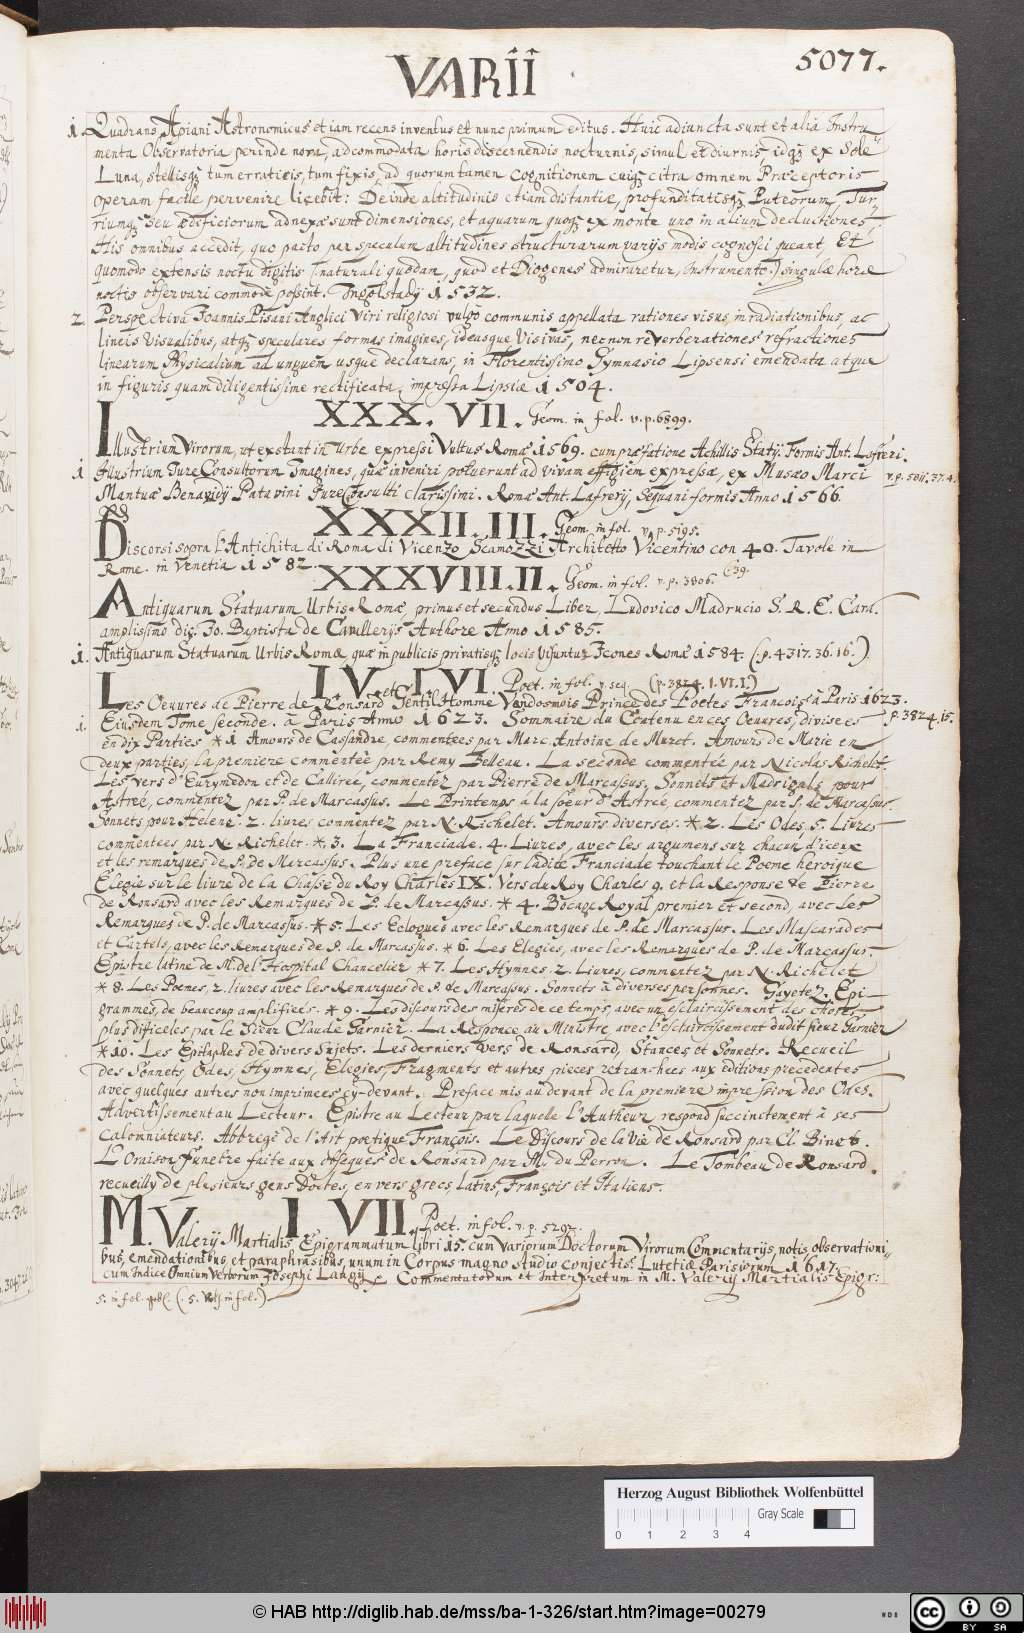 VARII
5077.
1. Quadrans Apiani Astronomicus et iam recens inventus et nunc primum editus. Huic adiuncta sunt et alia Instru-
menta Observatoria perinde nova, adcommodata horis discernendis nocturnis, simul et diurnis, idq; ex Sole
Luna, stellisq; tum erraticis, tum fixis, ad quorum tamen cognitionem cuiq; citra omnem Præceptoris
operam facile pervenire licebit: Deinde altitudinis etiam distantiæ, profunditatisq; Puteorum, Tur-
riumq; seu ædificiorum adnexæ sunt dimensiones, et aquarum quoq; ex monte uno in alium deductiones
His omnibus accedit, quo pacto per speculum altitudines structurarum varijs modis cognosci queant, Et
quomodo extensis noctu digitis (naturali quodam, quod et Diogenes admiraretur, Instrumento) singulæ horæ
noctis observari commode possint. Ingolstadij 1532.
2. Perspectiva Joannis Pisani Anglici Viri religiosi vulgo communis appellata rationes visus, in radiationibus, ac
lineis Visualibus, atq; speculares formas imagines, ideasque Visivas, nec non reverberationes refractiones
linearum Physicalium ad unguem usque declarans, in Florentissimo Gymnasio Lipsensi emendata atque
in figuris quam diligentissime rectificata, impressa Lipsiæ 1504.
XXX. VII. Geom. in fol. v.p.6899.
Illustrium Virorum, ut exstant in Urbe expressi Vultus Romæ 1569. cum præfatione Achillis Statij. Formis Ant. Lafreri.
1 Illustrium Jure Consultorum Imagines, quæ inveniri potuerunt ad vivam effigiem expressæ, ex Musæo Marci
v.p. 5011. 37.4.
Mantuæ Benavidij Patavini Jure Consulti clarissimi. Romæ Ant. Lafrerij, Sequani formis Anno 1566
XXXII. III. Geom. in fol. v. p. 5195.
Discorsi sopra l'Antichita di Roma di Vicenzo Scamozzi Architetto Vicentino con 40. Tavole in
Rame. in Venetia 1582.
XXXVIII. II. Geom. in fol. v. p. 3806.
Antiquarum Statuarum Urbis Romæ, primus et secundus Liber. Ludovico Madrucio S. R. E. Card.
amplissimo dic. Jo. Baptista de Cavallerijs Authore Anno 1585.
1. Antiquarum Statuarum Urbis Romæ quæ in publicis privatisq; locis visuntur Icones Romæ 1584. (:p. 4317. 36. 16:)
I. V. et I. VI. Poet. in fol. v. seq. (p. 3824. 1. VI. I.)
Les Oeuures de Pierre de Ronsard Gentil Homme Vandosmois Prince des Poetes Francois à Paris 1623.
1. Eiusdem Tome seconde. à Paris Anno 1623. Sommaire du Contenu en ces Oeuures, divisees
p. 3824. 15.
en dix Parties * 1 Amours de Cassandre, commentees par Marc. Antoine de Muret. Amours de Marie en
deux parties, la premiere commentée par Remy Belleau. La seconde commentée par Nicolas Richelet
Les vers d'Eurymedon et de Callirée, commentez par Pierre de Marcassus, Sonnets et Madrigals pour
Astrée, commentez par P. de Marcassus. Le Printemps à la soeur d'Astrée, commentez par P. de Marcassus.
Sonnets pour Helene. 2. liures commentez par N. Richelet. Amours diverses. * 2. Les Odes, 5. Liures
commentees par N. Richelet. * 3. La Franciade. 4. Liures, avec les argumens sur chacun d'iceux
et les remarques de P. de Marcassus. Plus une preface sur ladite Franciade touchant le Poeme heroique
Elegie sur le liure de la Chasse du Roy Charles IX. Vers du Roy Charles 9. et la Response de Pierre
de Ronsard avec les Remarques de P. de Marcassus. * 4. Bocage Royal premier et second, avec les
Remarques de P. de Marcassus. * 5. Les Eclogues avec les Remarques de P. de Marcassus. Les Mascarades
et Cartels, avec les Remarques de P. de Marcassus. * 6. Les Elegies, avec les Remarques de P. de Marcassus.
Epistre latine de M. de l'Hospital Chancelier * 7. Les Hymnes. 2. Liures, commentez par N. Richelet
* 8. Les Poemes, 2. liures avec les Remarques de P. de Marcassus. Sonnets à diverses personnes. Gayetez. Epi-
grammes, de beaucoup amplifiées. * 9. Les discours des miseres de ce temps, avec un esclaircissement des choses
plus dificeles par le Sieur Claude Garnier. La Responce au Ministre, avec l'esclaircissement dudit sieur Garnier
* 10. Les Epitaphes de divers Sujets. Les derniers vers de Ronsard, Stances et Sonnets. Recueil
des Sonnets, Odes, Hymnes, Elegies, Fragments et autres pieces retranchées aux editions precedentes
avec quelques autres non imprimees cy-devant. Preface mis au devant de la premiere impression des Odes.
Advertissement au Lecteur. Epistre au Lecteur par laquelle l'Autheur respond succinctement à ses
calomniateurs. Abbregé de l'Art poetique François. Le Discours de la Vie de Ronsard par Cl. Binet.
L'Oraison funebre faite aux obseques de Ronsard par M. du Perron. Le Tombeau de Ronsard,
recueilly de plusieurs gens Doctes, en vers grecs, latins, François et Italiens.
I. VII. Poet. in fol. v. p. 5292.
M. Valerij Martialis Epigrammatum libri 15. cum Variorum Doctorum Virorum Commentarijs, notis, observationi-
bus, emendationibus et paraphrasibus, unum in Corpus magno studio conjectis. Lutetiæ Parisiorum 1617.
cum Indice Omnium Verborum Josephi Langij. Commentatorum et Interpretum in M. Valerij Martialis Epigr: